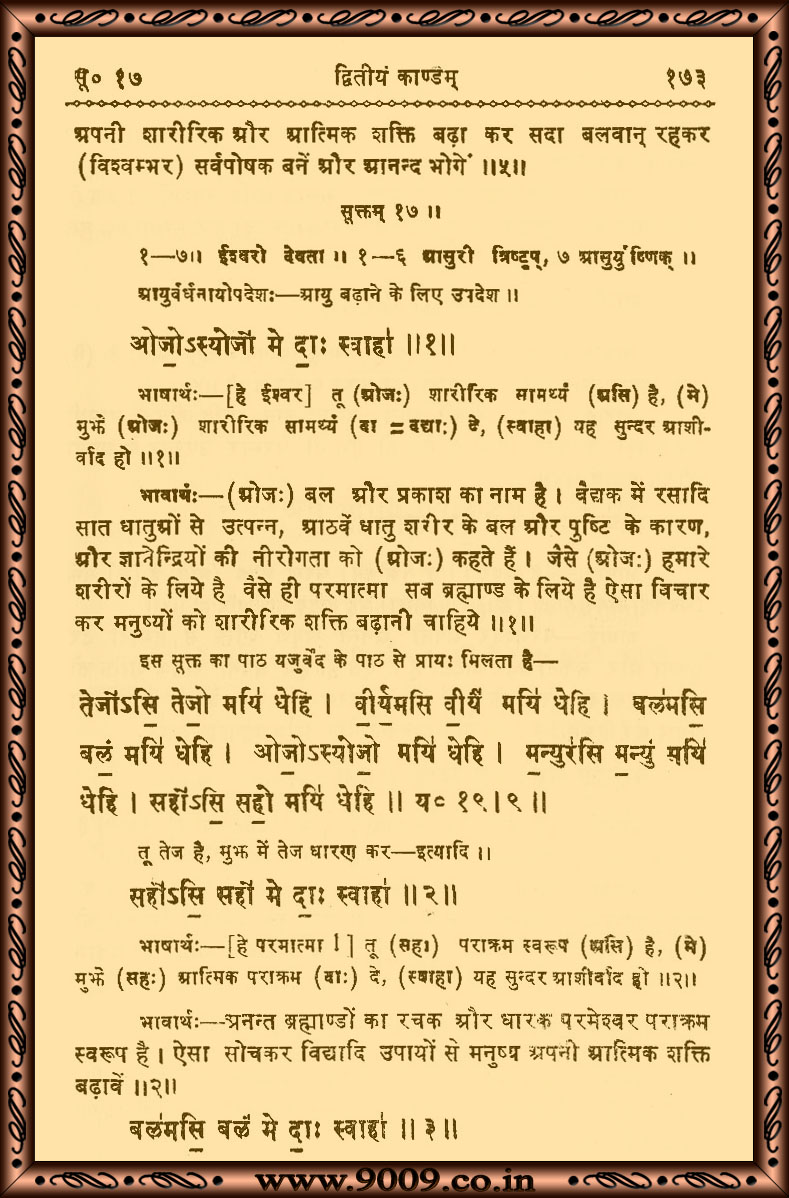 सू० १७ द्वितीयं काण्डम् १७३
अपनी शारीरिक और आत्मिक शक्ति बढ़ा कर सदा बलवान् रहकर
(विश्वम्भर) सर्वपोषक बनें और आनन्द भोगें ॥५॥
सूक्तम् १७ ॥
१—७॥ ईश्वरो देवता ॥ १—६ आसुरी त्रिष्टुप्, ७ आसुर्युष्णिक् ॥
आयुर्वर्धनायोपदेशः—आयु बढ़ाने के लिए उपदेश ॥
ओजो॒ऽस्योजो॑ मे दाः॒ स्वाहा॑ ॥१॥
भाषार्थः—[हे ईश्वर] तू (ओजः) शारीरिक सामर्थ्य (असि) है, (मे)
मुझे (ओजः) शारीरिक सामर्थ्य (दा = दद्याः) दे, (स्वाहा) यह सुन्दर आशी-
र्वाद हो ॥१॥
भावार्थः—(ओजः) बल और प्रकाश का नाम है। वैद्यक में रसादि
सात धातुओं से उत्पन्न, आठवें धातु शरीर के बल और पुष्टि के कारण,
और ज्ञानेन्द्रियों की नीरोगता को (ओजः) कहते हैं। जैसे (ओजः) हमारे
शरीरों के लिये है वैसे ही परमात्मा सब ब्रह्माण्ड के लिये है ऐसा विचार
कर मनुष्यों को शारीरिक शक्ति बढ़ानी चाहिये ॥१॥
इस सूक्त का पाठ यजुर्वेद के पाठ से प्रायः मिलता है—
तेजो॑ऽसि॒ तेजो॒ मयि॑ धेहि। वी॒र्य॑मसि वी॒र्यं॑ मयि॑ धेहि। बल॑मसि॒
बलं॒ मयि॑ धेहि। ओजो॒ऽस्योजो॒ मयि॑ धेहि। म॒न्युर॑सि म॒न्युं मयि॑
धेहि। सहो॑ऽसि॒ सहो॒ मयि॑ धेहि॥ य० १९।९॥
तू तेज है, मुझ में तेज धारण कर—इत्यादि ॥
सहो॑ऽसि॒ सहो॑ मे दाः॒ स्वाहा॑ ॥२॥
भाषार्थः—[हे परमात्मा !] तू (सहः) पराक्रम स्वरूप (असि) है, (मे)
मुझे (सहः) आत्मिक पराक्रम (दाः) दे, (स्वाहा) यह सुन्दर आशीर्वाद हो ॥२॥
भावार्थः—अनन्त ब्रह्माण्डों का रचक और धारक परमेश्वर पराक्रम
स्वरूप है। ऐसा सोचकर विद्यादि उपायों से मनुष्य अपनी आत्मिक शक्ति
बढ़ावें ॥२॥
बल॑मसि॒ बलं॑ मे दाः॒ स्वाहा॑ ॥३॥
www.9009.co.in